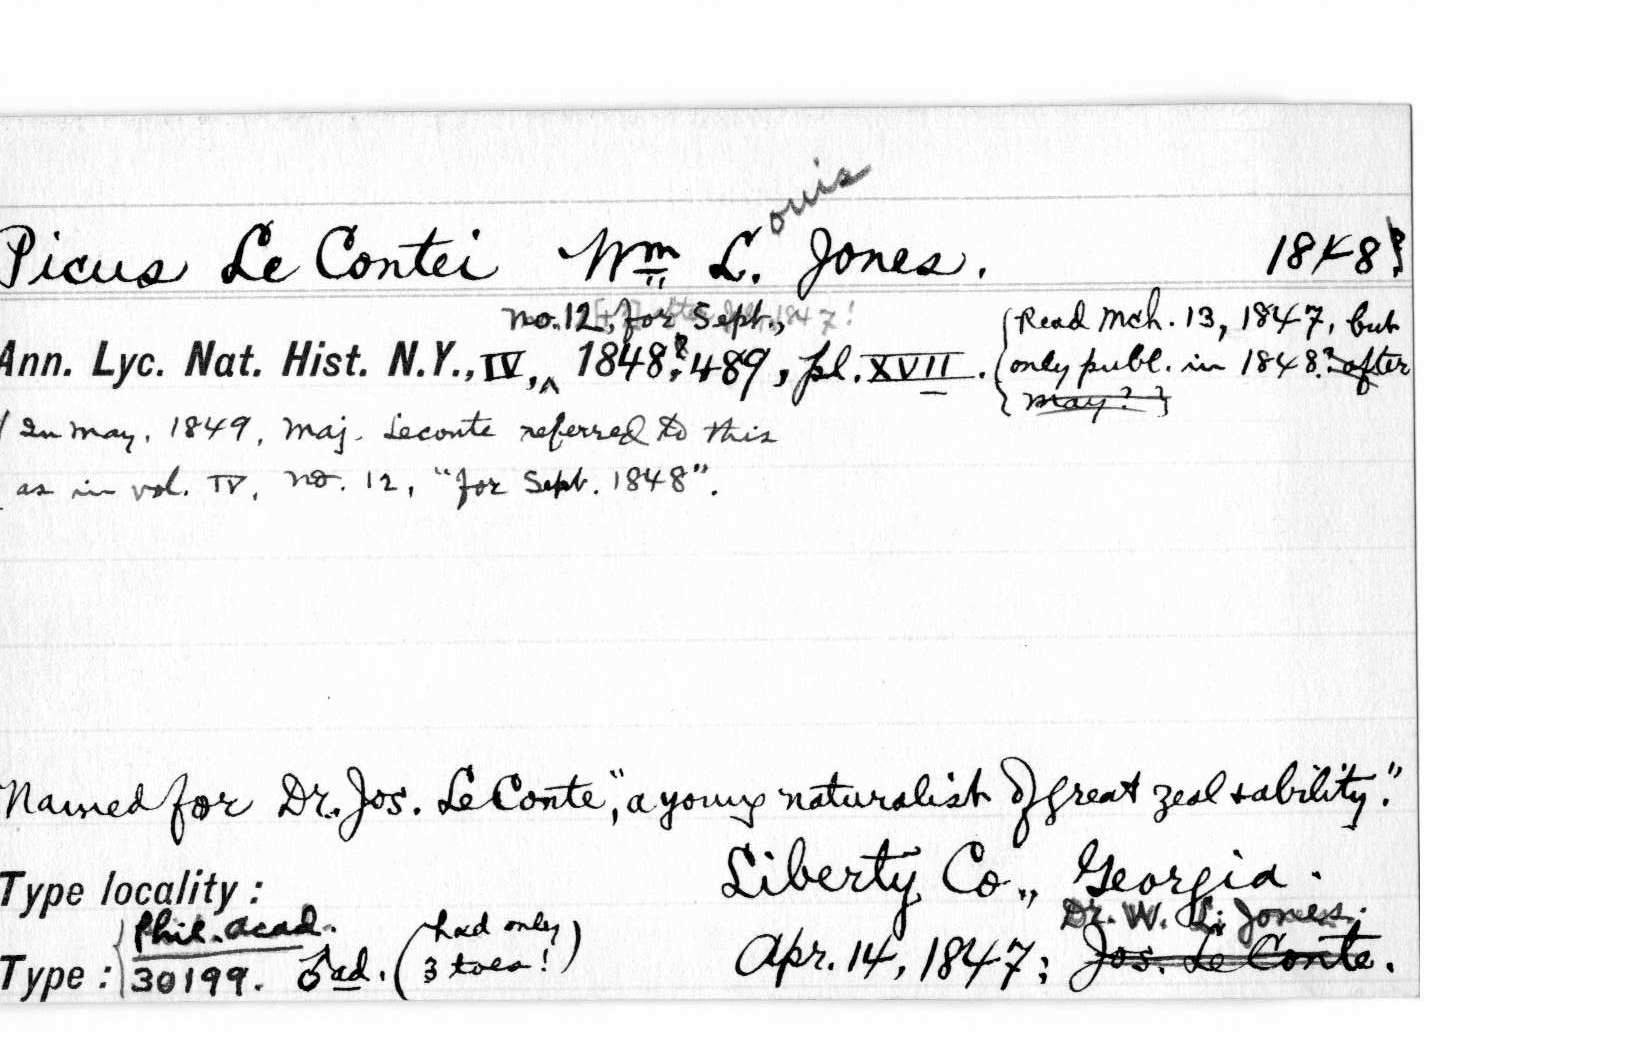 ouis
Picus Le Contei Wm L. Jones. 1848?
no. 12, for Sept.,
Ann. Lyc. Nat. Hist. N.Y., IV, ^ 1848?, 489, pl. XVII. {Read Mch. 13, 1847, but
only publ. in 1848? after
May??}
In May, 1849, Maj. Leconte referred to this
as in vol. IV, no. 12, "for Sept. 1848".
Named for Dr. Jos. LeConte, "a young naturalist of great zeal & ability."
Type locality: Liberty Co., Georgia.
Phil. Acad. (had only Dr. W. L. Jones.
Type: 30199. ♂ ad. 3 toes!) Apr. 14, 1847; Jos. Le Conte.